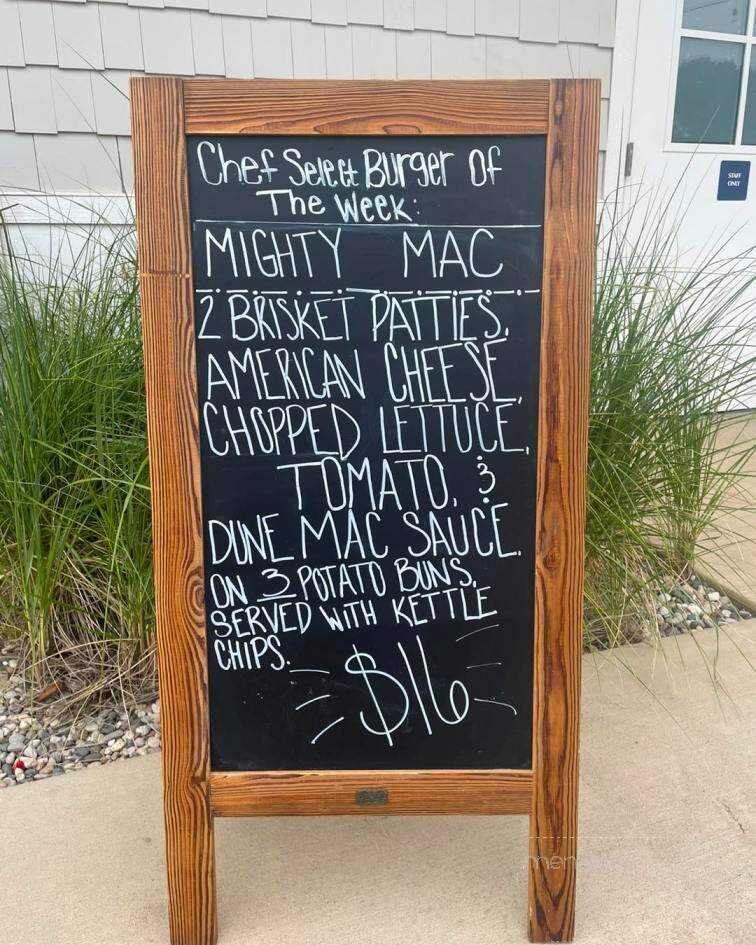 Chef Select Burger Of
The Week:
MIGHTY MAC
2 BRISKET PATTIES,
AMERICAN CHEESE,
CHOPPED LETTUCE,
TOMATO, &
DUNE MAC SAUCE.
ON 3 POTATO BUNS.
SERVED WITH KETTLE
CHIPS.
$16
STAFF
ONLY